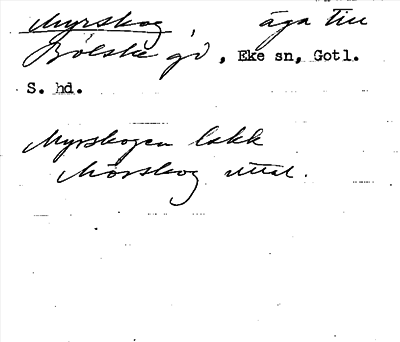 Myrskog, äga till
Bölske gd, Eke sn, Gotl.
S. hd.
Myrskogen lakk
Morskog uttal.